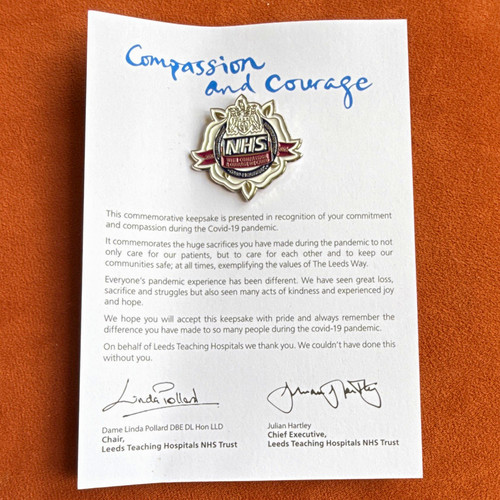 Compassion
and Courage
NHS
WITH COMPASSION
& COURAGE WE CARE
This commemorative keepsake is presented in recognition of your commitment
and compassion during the Covid-19 pandemic.
It commemorates the huge sacrifices you have made during the pandemic to not
only care for our patients, but to care for each other and to keep our
communities safe; at all times, exemplifying the values of The Leeds Way.
Everyone's pandemic experience has been different. We have seen great loss,
sacrifice and struggles but also seen many acts of kindness and experienced joy
and hope.
We hope you will accept this keepsake with pride and always remember the
difference you have made to so many people during the covid-19 pandemic.
On behalf of Leeds Teaching Hospitals we thank you. We couldn't have done this
without you.
Linda Pollard
Dame Linda Pollard DBE DL Hon LLD
Chair,
Leeds Teaching Hospitals NHS Trust
Julian Hartley
Julian Hartley
Chief Executive,
Leeds Teaching Hospitals NHS Trust